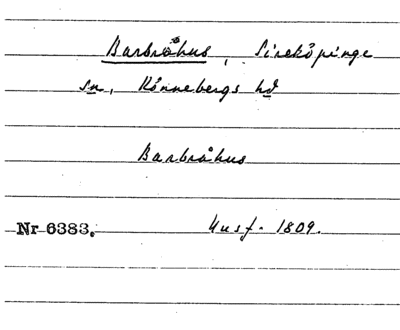 Barbråhus, Sireköpinge
sn, Rönnebergs hd
Barbråhus
Nr 6383. Husf. 1809.